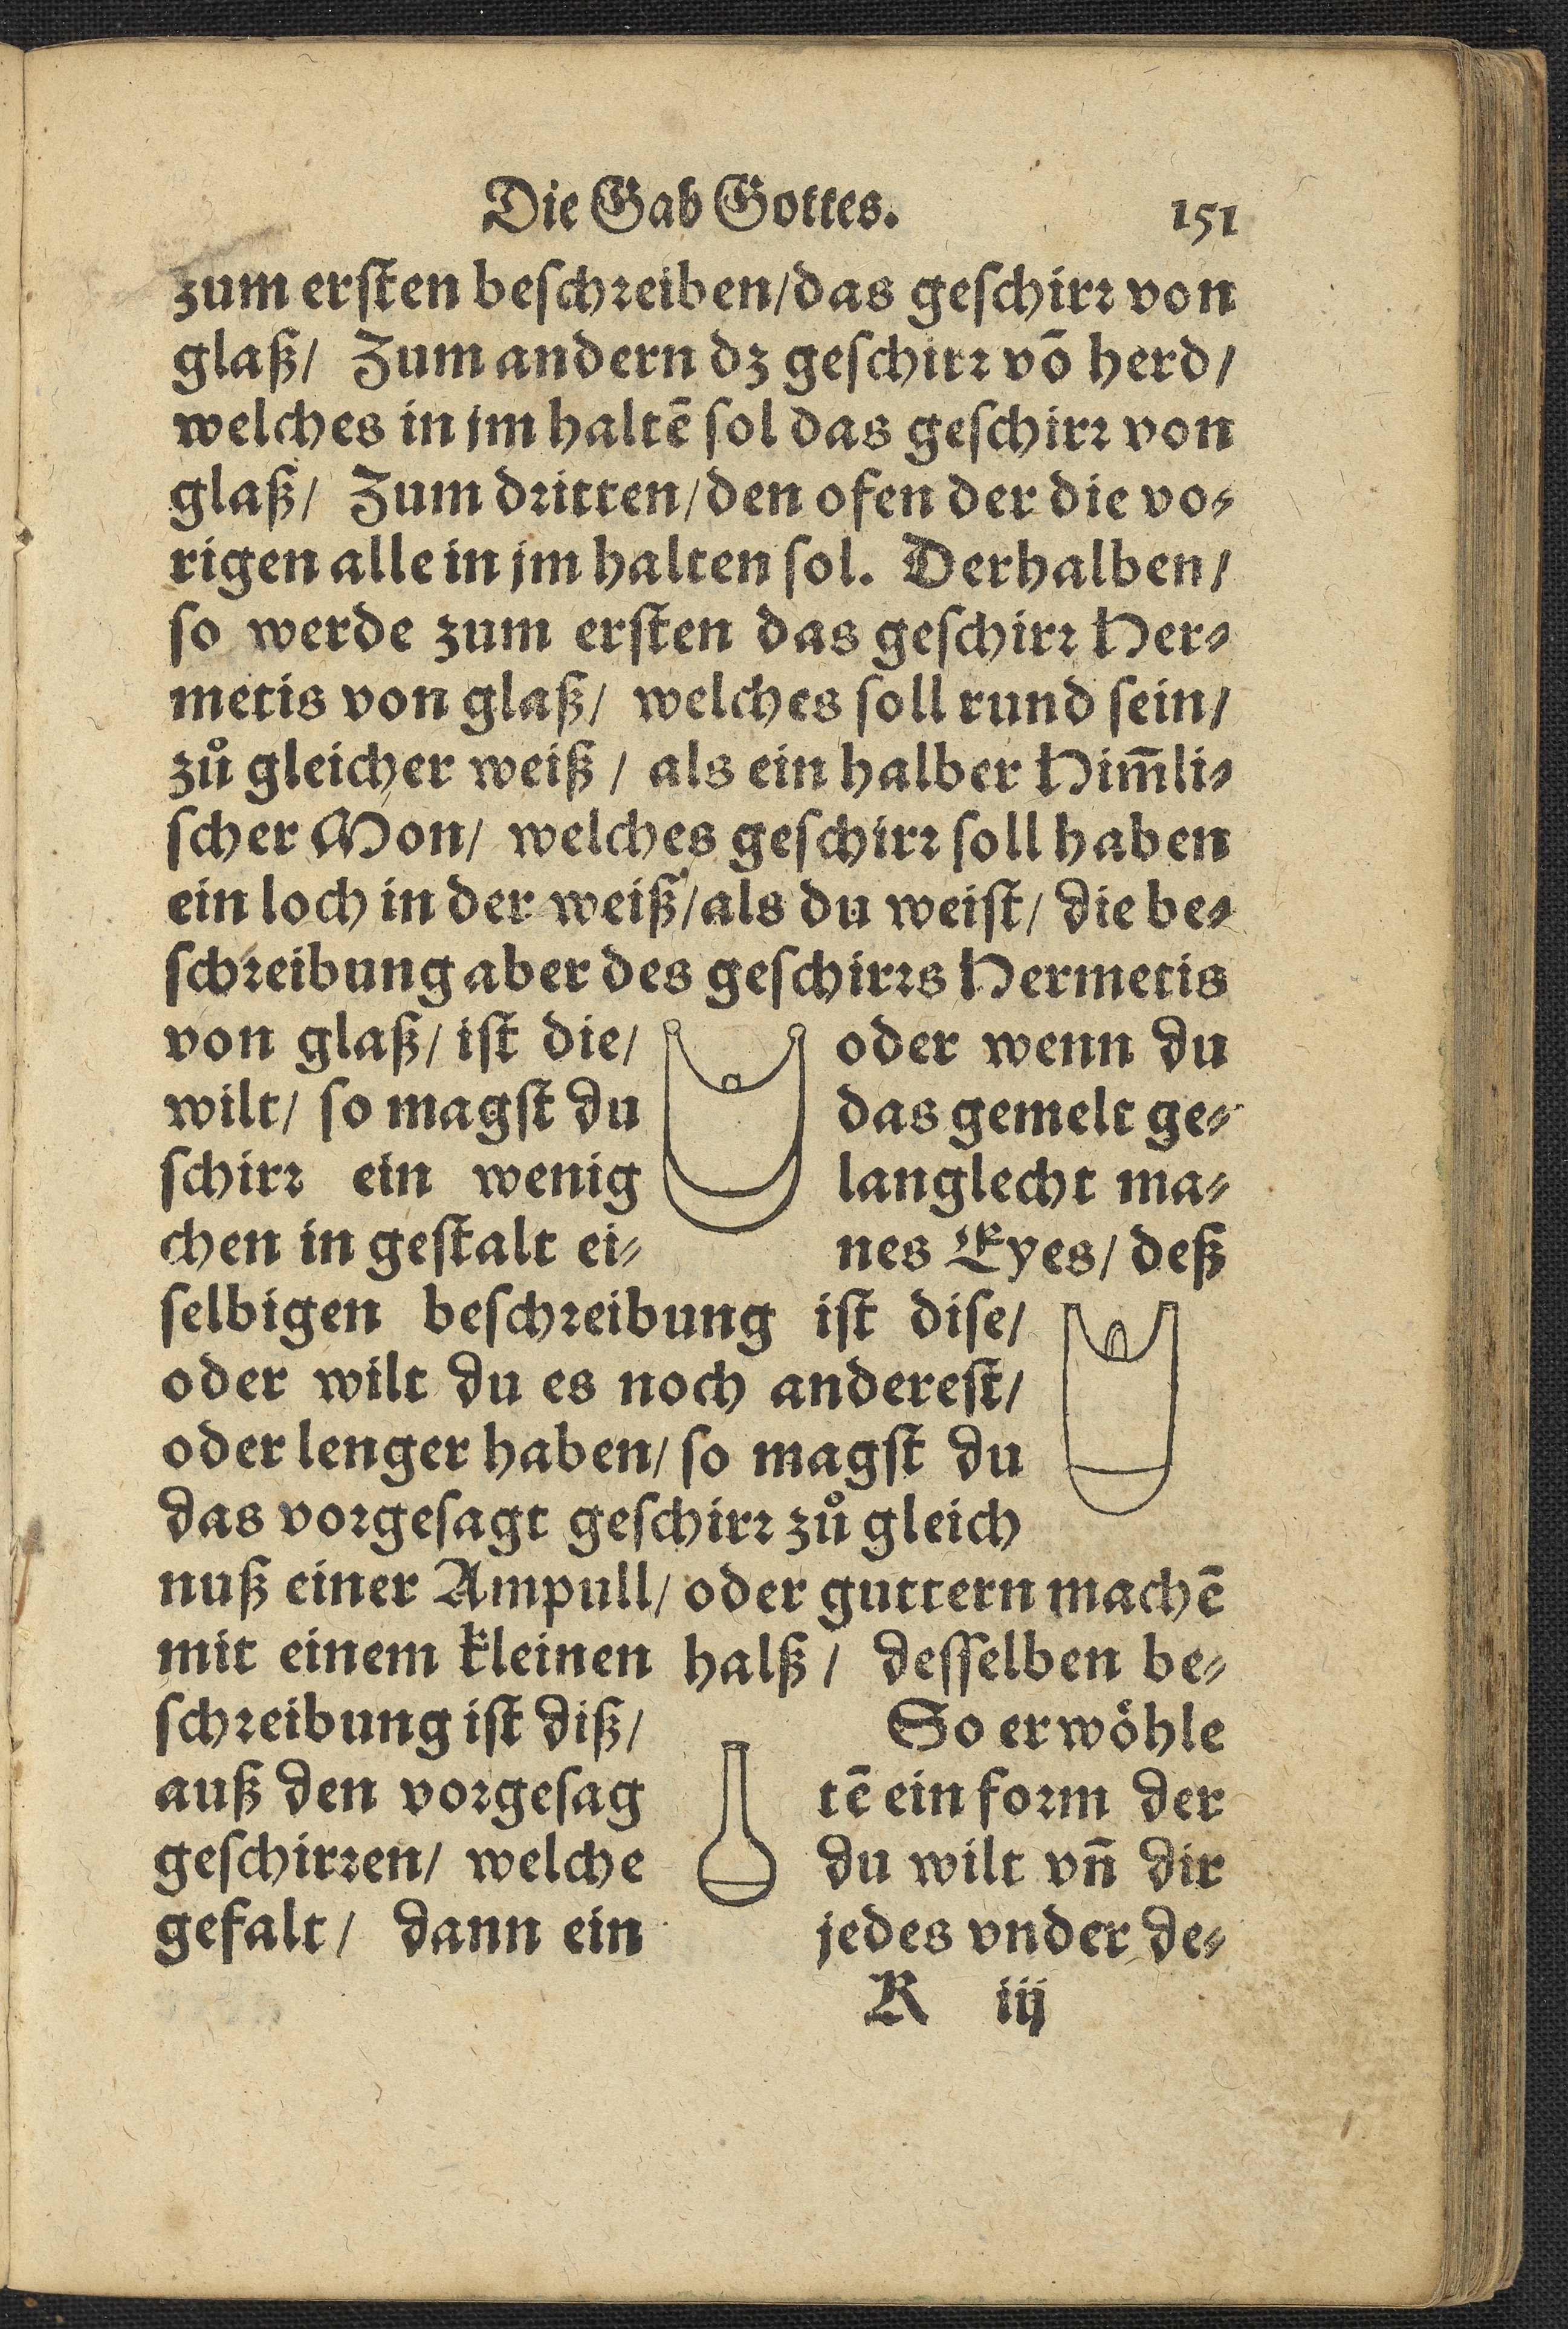 Die Gab Gottes. 151
zum ersten beschreiben/das geschirr von
glaß/ Zum andern dz geschirr võ herd/
welches in jm haltẽ sol das geschirr von
glaß/ Zum dritten/den ofen der die vo⸗
rigen alle in jm halten sol. Derhalben/
so werde zum ersten das geschirr Her⸗
metis von glaß/ welches soll rund sein/
zů gleicher weiß/ als ein halber Him̃li⸗
scher Mon/ welches geschirr soll haben
ein loch in der weiß/als du weist/ die be⸗
schreibung aber des geschirrs Hermetis
von glaß/ ist die/ oder wenn du
wilt/ so magst du das gemelt ge⸗
schirr ein wenig langlecht ma⸗
chen in gestalt ei⸗ nes Eyes/ deß
selbigen beschreibung ist dise/
oder wilt du es noch anderest/
oder lenger haben/ so magst du
das vorgesagt geschirr zů gleich
nuß einer Ampull/ oder guttern machẽ
mit einem kleinen halß/ desselben be⸗
schreibung ist diß/ So erwöhle
auß den vorgesag tẽ ein form der
geschirren/ welche du wilt vñ dir
gefalt/ dann ein jedes vnder de⸗
R iij